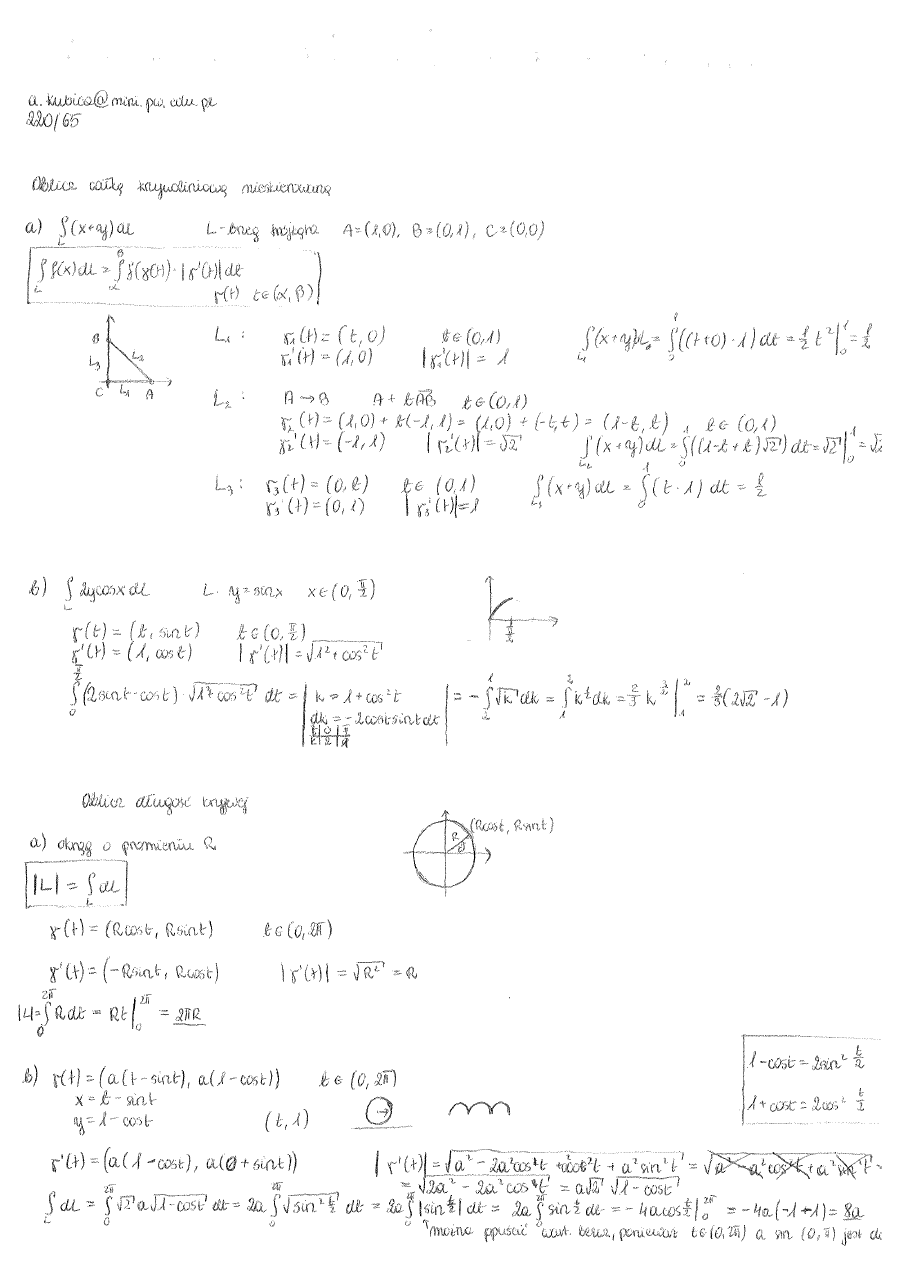 a.kubica@mini.pw.edu.pl
220/65
Oblicz całkę krzywoliniową nieskierowaną
a) ∫_L (x+y) dl L - brzeg trójkąta A=(1,0), B=(0,1), C=(0,0)
∫_L f(x) dl = ∫_α^β f(γ(t)) · |γ'(t)| dt
γ(t) t∈(α, β)
L₁: γ₁(t) = (t, 0) t∈(0,1) ∫_{L₁} (x+y) dl = ∫_0^1 ((t+0)·1) dt = 1/2 t² |_0^1 = 1/2
γ₁'(t) = (1,0) |γ₁'(t)| = 1
B
L₃ L₂
C L₁ A
L₂: A→B A + tAB t∈(0,1)
γ₂(t) = (1,0) + t(-1,1) = (1,0) + (-t,t) = (1-t, t) t∈(0,1)
γ₂'(t) = (-1,1) |γ₂'(t)| = √2 ∫_{L₂} (x+y) dl = ∫_0^1 ((1-t+t)√2) dt = √2 |_0^1 = √2
L₃: γ₃(t) = (0,t) t∈(0,1) ∫_{L₃} (x+y) dl = ∫_0^1 (t·1) dt = 1/2
γ₃'(t) = (0,1) |γ₃'(t)| = 1
b) ∫_L 2ycosx dl L. y=sinx x∈(0, π/2)
π/2
γ(t) = (t, sint) t∈(0, π/2)
γ'(t) = (1, cost) |γ'(t)| = √(1²+cos²t)
∫_0^{π/2} (2sint·cost)·√(1+cos²t) dt = | k = 1+cos²t | = -∫_2^1 √k dk = ∫_1^2 k^{1/2} dk = 2/3 k^{3/2} |_1^2 = 2/3(2√2 - 1)
dk = -2costsintdt
t | 0 | π/2
k | 2 | 1
Oblicz długość krzywej
a) okrąg o promieniu R
R (Rcost, Rsint)
|L| = ∫_L dl
γ(t) = (Rcost, Rsint) t∈(0, 2π)
γ'(t) = (-Rsint, Rcost) |γ'(t)| = √R² = R
|L| = ∫_0^{2π} R dt = Rt |_0^{2π} = 2πR
1-cost = 2sin² t/2
1+cost = 2cos² t/2
b) γ(t) = (a(t-sint), a(1-cost)) t∈(0, 2π)
x = t-sint
y = 1-cost (t,1)
γ'(t) = (a(1-cost), a(0+sint)) |γ'(t)| = √(a² - 2a²cost + a²cos²t + a²sin²t) = √(a² - a²cos²t + a²sin²t) =
= √(2a² - 2a²cost) = a√2 √(1-cost)
∫_L dl = ∫_0^{2π} √2 a√(1-cost) dt = 2a ∫_0^{2π} √(sin² t/2) dt = 2a ∫_0^{2π} |sin t/2| dt = 2a ∫_0^{2π} sin t/2 dt = -4a cos t/2 |_0^{2π} = -4a(-1-1) = 8a
↑można opuścić wart. bezwz, ponieważ t∈(0,2π) a sin (0,π) jest do